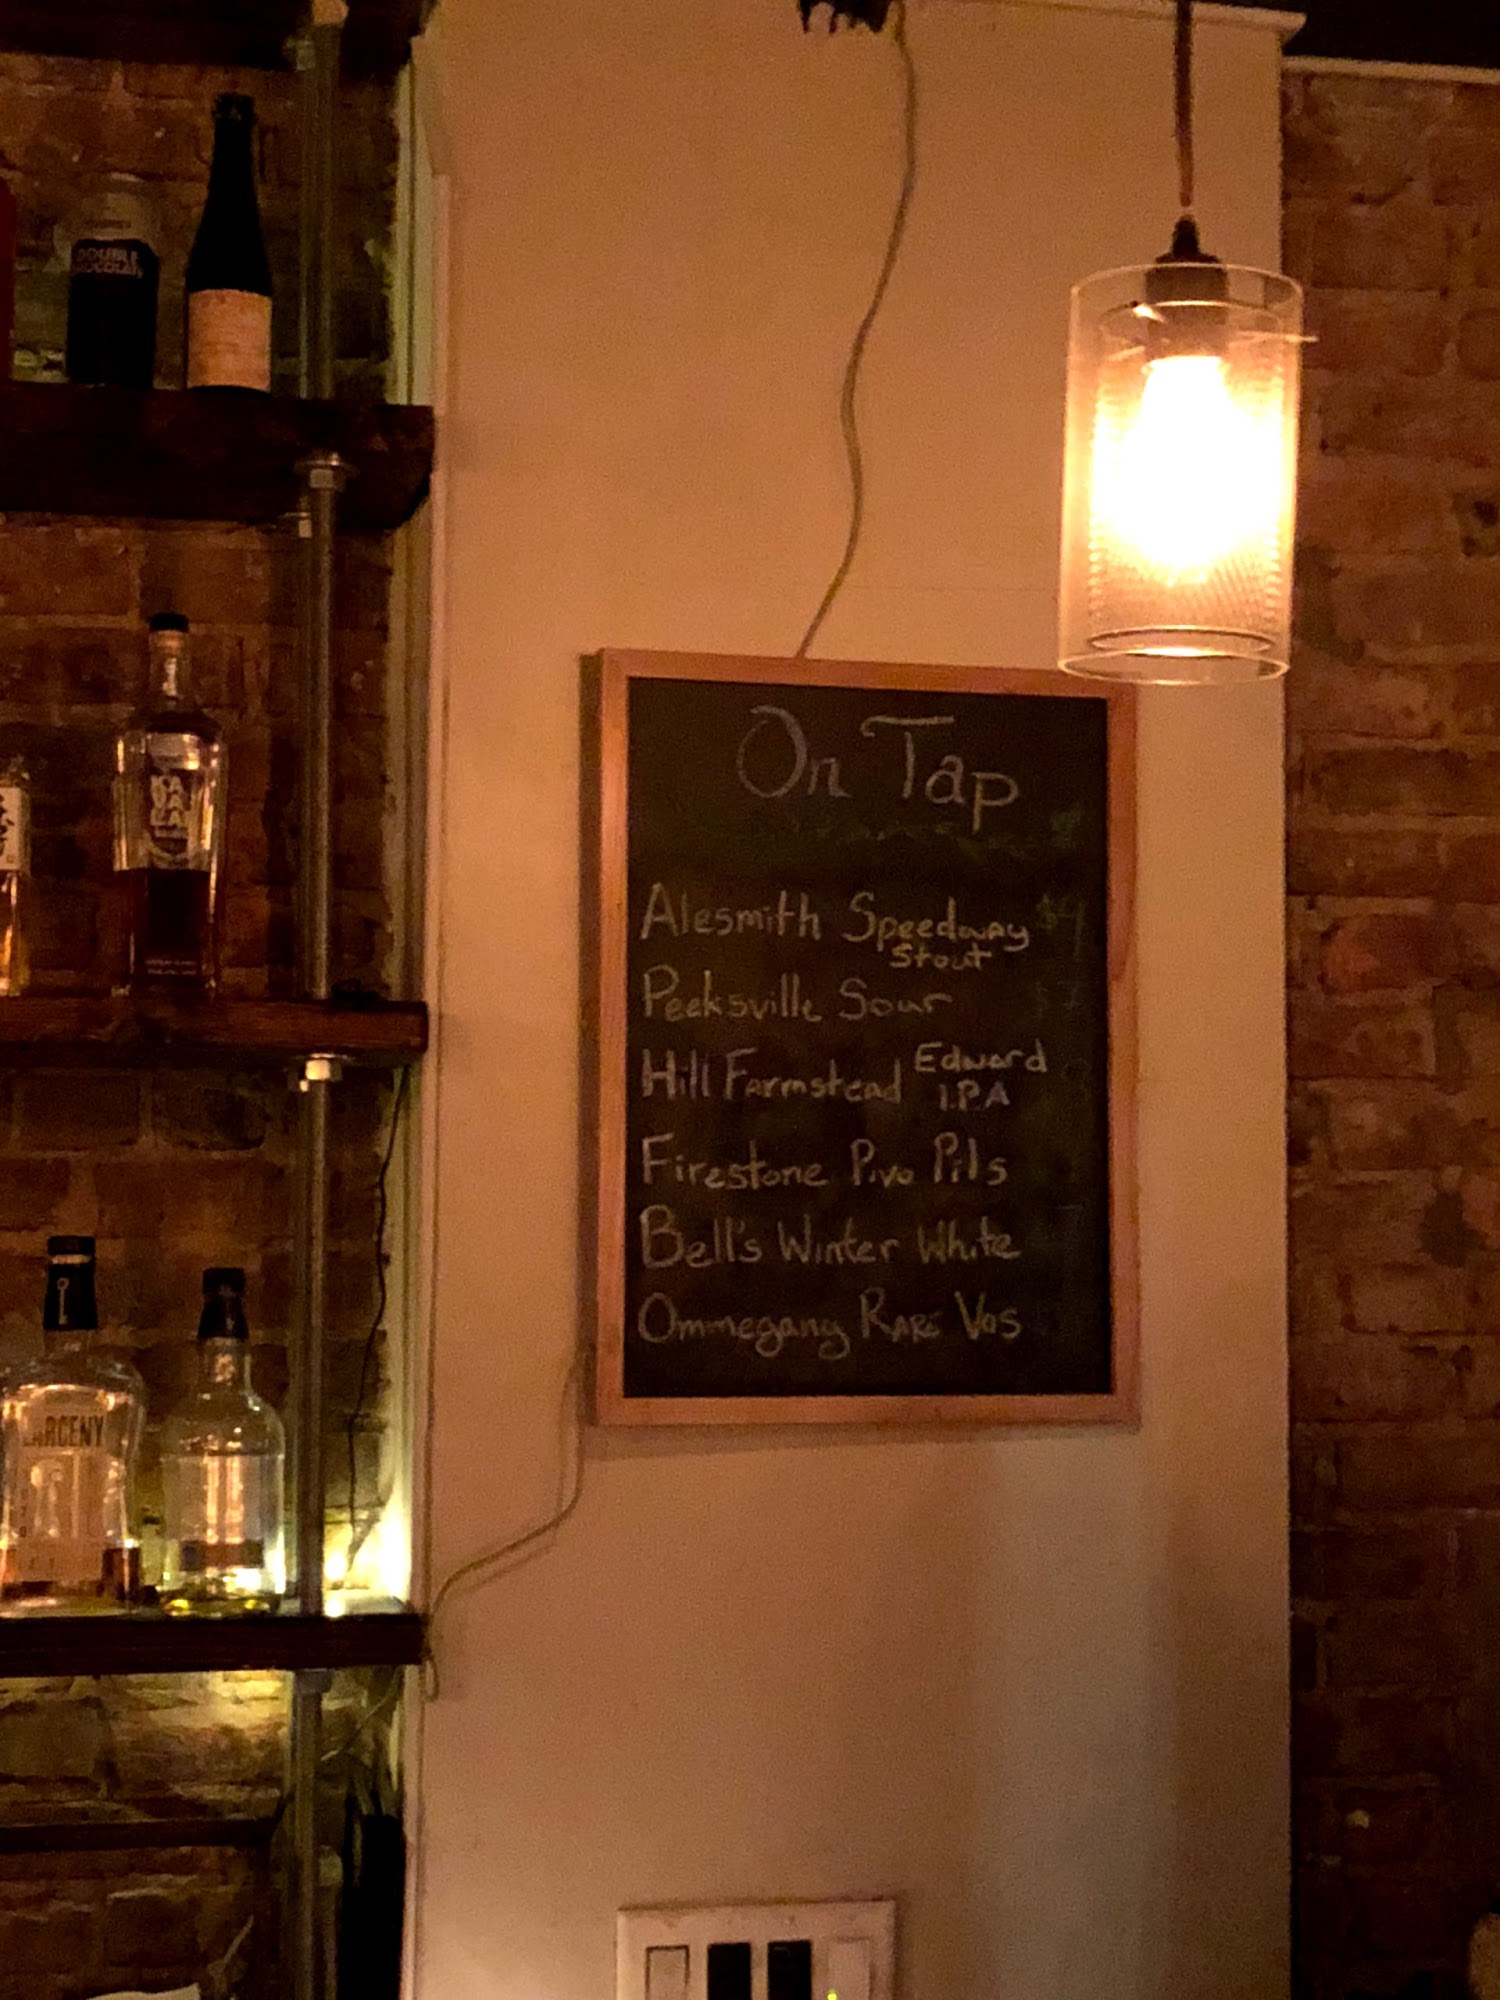 DOUBLE
CHOCOLATE
KA
VA
LAN
On Tap
Alesmith Speedway $9
Stout
Peeksville Sour $7
Hill Farmstead Edward
I.P.A
Firestone Pivo Pils
Bell's Winter White 7
Ommegang RARE VOS
LARCENY